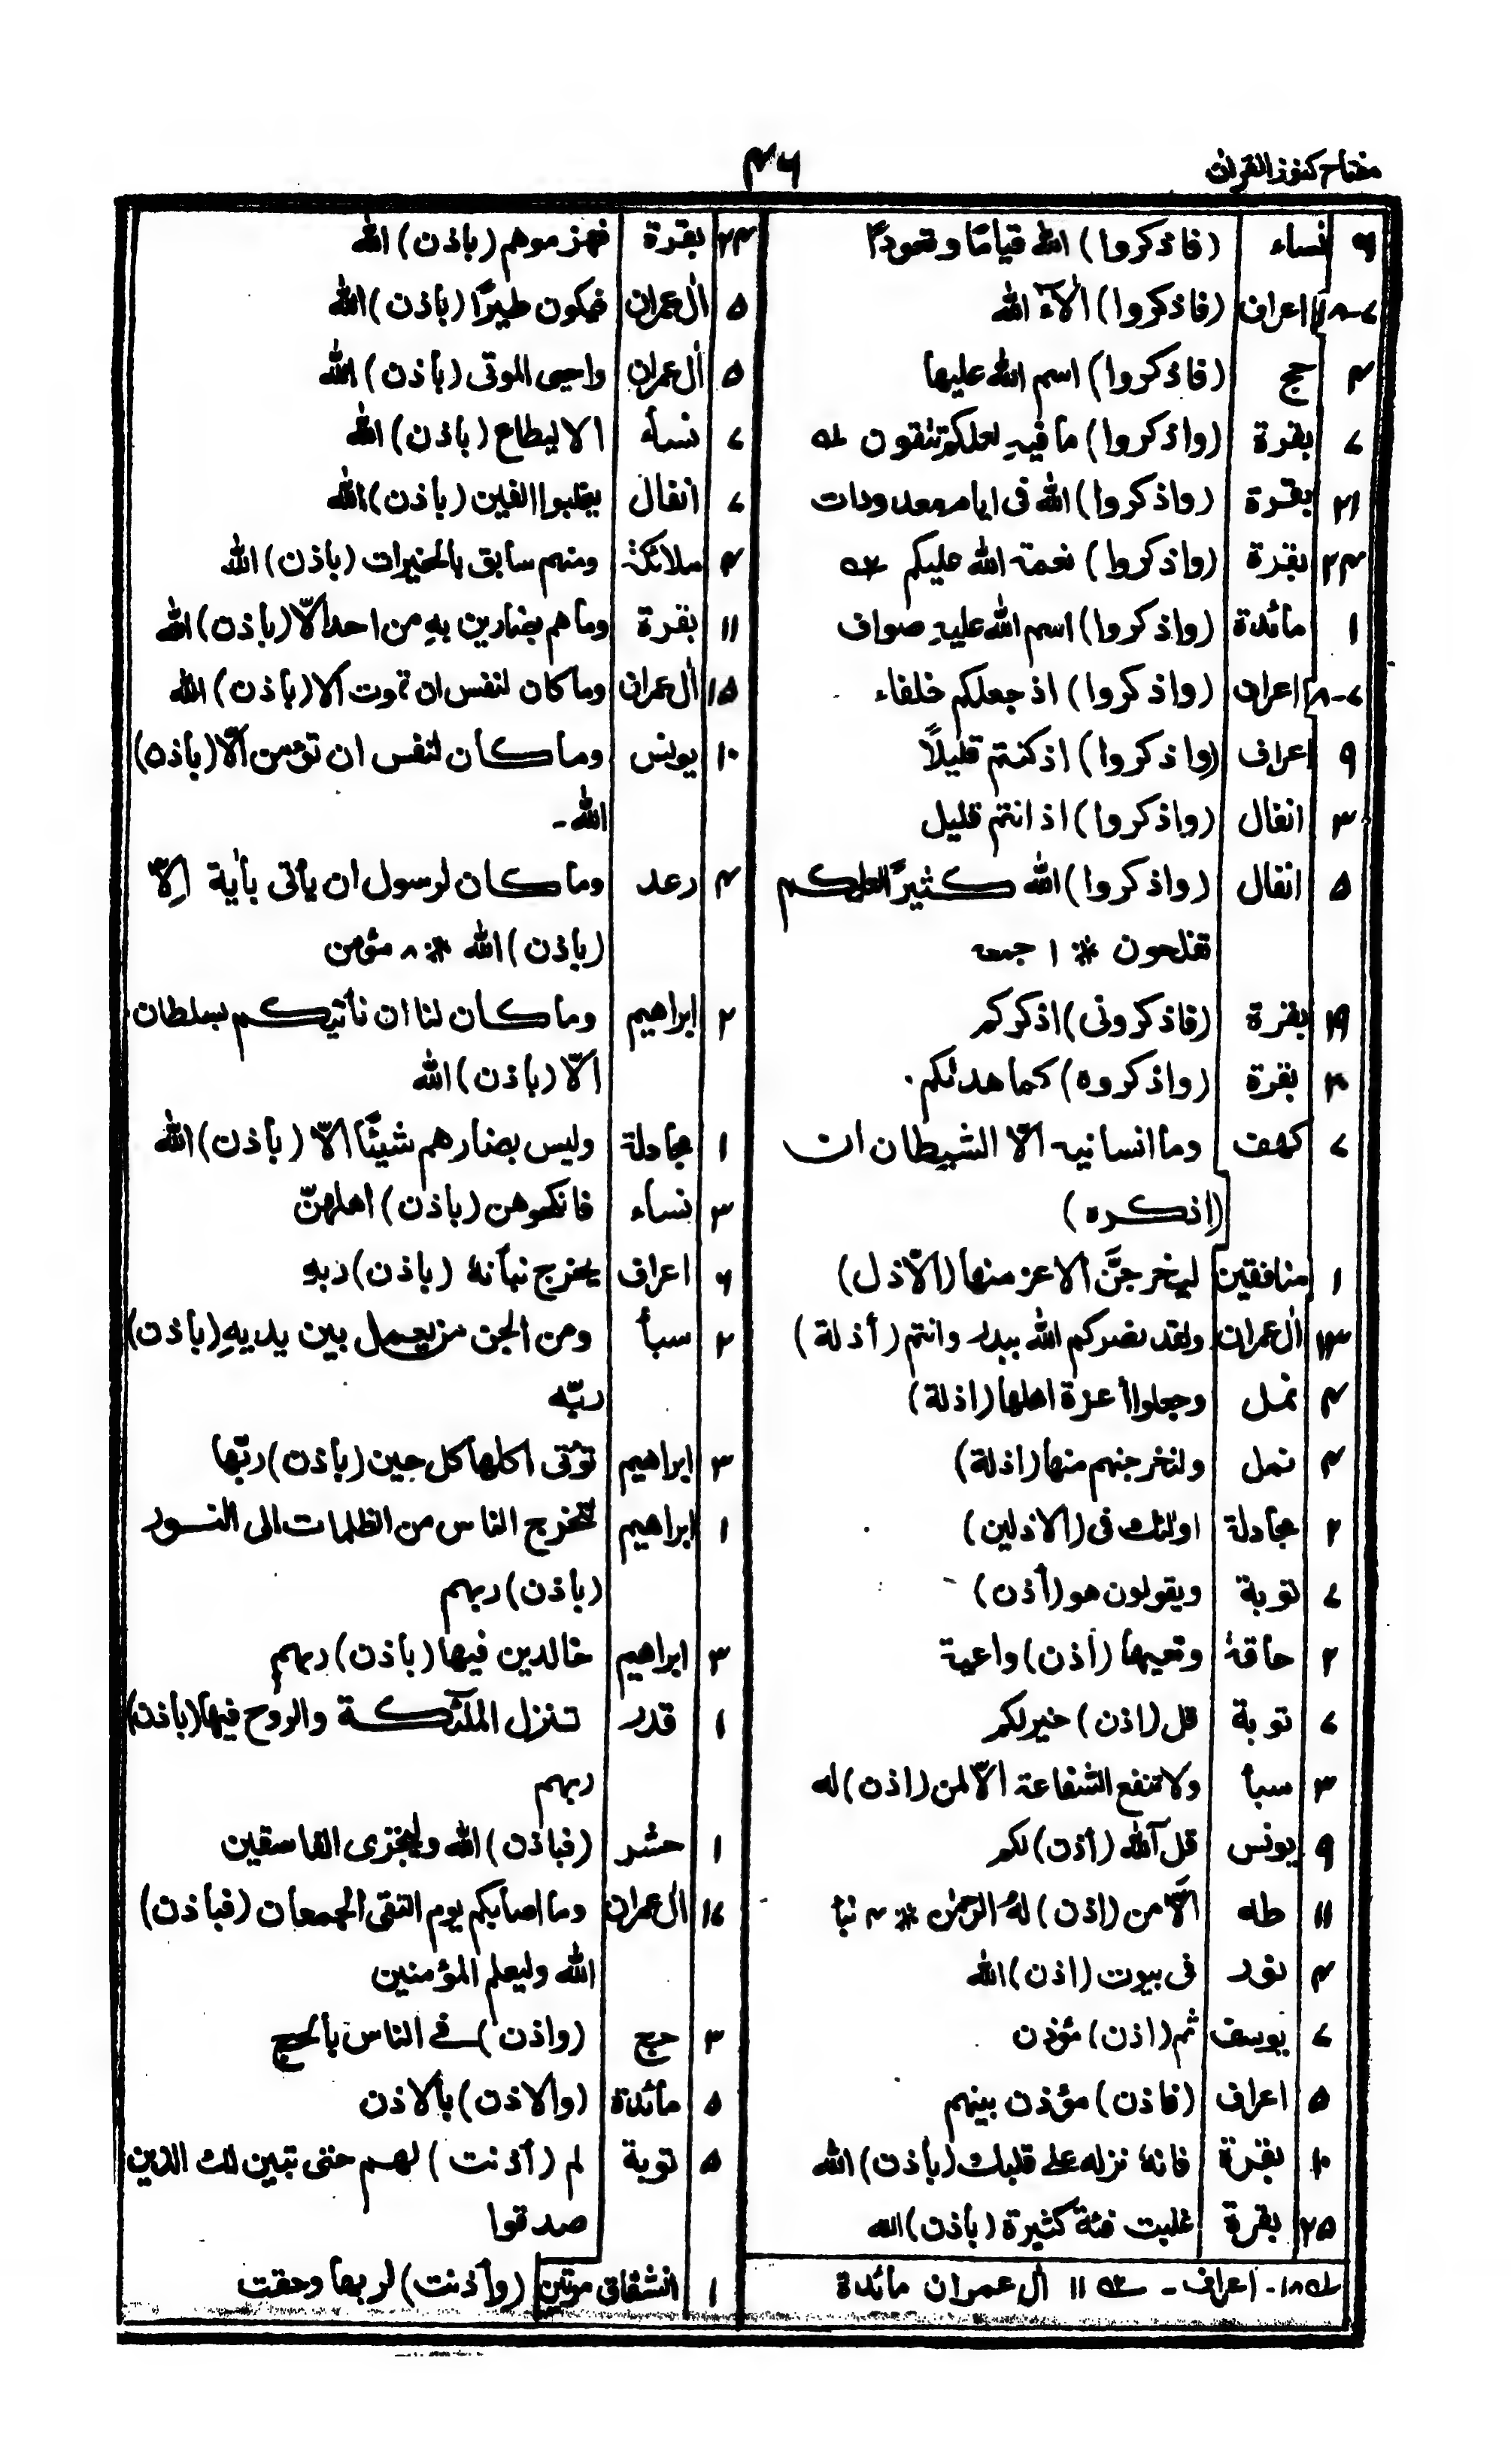 مفتاح کنوز القران
۴۶
۹ نساء (فاذکروا) الله قیامًا وقعودًا
۷-۸ اعراف (فاذکروا) اٰلآء الله
۴ حج (فاذکروا) اسم الله علیها
۷ بقرة (واذکروا) ما فیہِ لعلکم تتقون
۲۱ بقرة (واذکروا) الله فی ایام معدودات
۲۴ بقرة (واذکروا) نعمة الله علیکم
۱ مائدة (واذکروا) اسم الله علیہِ صواف
۷-۸ اعراف (واذکروا) اذ جعلکم خلفاء
۹ اعراف (واذکروا) اذ کنتم قلیلًا
۳ انفال (واذکروا) اذ انتم قلیل
۵ انفال (واذکروا) الله کثیرًا لعلکم
تفلحون * ۱ جمعہ
۱۹ بقرة (فاذکرونی) اذکرکم
بقرة (واذکروه) کما هدٰىکم
۷ کهف وما انسانیه الّا الشیطان ان
(اذکره)
۱ منافقین لیخرجَنَّ الاعز منها (الاذل)
۱۳ اٰل عمران ولقد نصرکم الله ببدر وانتم (أذلة)
۴ نمل وجعلوا أعزة اهلها (اذلة)
۴ نمل ولنخرجنهم منها (اذلة)
۲ مجادلة اولئك فی (الاذلین)
۷ توبة ویقولون هو (أذن)
۲ حاقة وتعیها (أذن) واعیة
۷ توبة قل (اذن) خیر لکم
۳ سبأ ولا تنفع الشفاعة الّا لمن (اذن) له
۹ یونس قل آلله (أذن) لکم
۱۱ طه الّا من (اذن) لهُ الرحمٰن * ۴ نبأ
۴ نور فی بیوت (اذن) الله
۷ یوسف ثم (اذن) مؤذن
۵ اعراف (فاذن) مؤذن بینهم
۱۰ بقرة فانهٗ نزله علی قلبك (بأذن) الله
۲۵ بقرة غلبت فئة کثیرة (بأذن) الله
۱۸- اعراف - ۱۱ اٰل عمران مائدة
۲۴ بقرة فهزموهم (باذن) الله
۵ اٰل عمران فیکون طیرًا (باذن) الله
۵ اٰل عمران واحیی الموتی (بأذن) الله
۷ نسأ الا لیطاع (باذن) الله
۷ انفال یغلبوا الفین (باذن) الله
۴ ملائکة ومنهم سابق بالخیرات (باذن) الله
۱۱ بقرة وما هم بضارین بهِ من احد الّا (باذن) الله
۱۵ اٰل عمران وما کان لنفس ان تموت الا (باذن) الله
۱۰ یونس وما کان لنفس ان تؤمن الّا (باذن)
الله -
۴ رعد وما کان لرسول ان یأتی بأیة الّا
(باذن) الله * ۸ مؤمن
۲ ابراهیم وما کان لنا ان نأتیکم بسلطان
الّا (باذن) الله
۱ مجادلة ولیس بضارهم شیئًا الّا (بأذن) الله
۳ نساء فانکحوهن (بأذن) اهلهنّ
۶ اعراف یخرج نباتهٗ (باذن) ربهِ
۲ سبأ ومن الجن من یعمل بین یدیهِ (باذن)
ربّه
۳ ابراهیم تؤتی اکلها کل حین (بأذن) ربّها
۱ ابراهیم لتخرج الناس من الظلمات الی النور
(باذن) ربهم
۳ ابراهیم خالدین فیها (باذن) ربهم
۱ قدر تنزل الملٰٓئکة والروح فیها (باذن)
ربهم
۱ حشر (فباذن) الله ولیخزی الفاسقین
۱۷ اٰل عمران وما اصابکم یوم التقی الجمعان (فباذن)
الله ولیعلم المؤمنین
۳ حج (واذن) فی الناس بالحج
۵ مائدة (والاذن) بالاذن
۵ توبة لم (أذنت) لهم حتی تبین لك الذین
صدقوا
۱ انشقاق مرتین (وأذنت) لربها وحقت